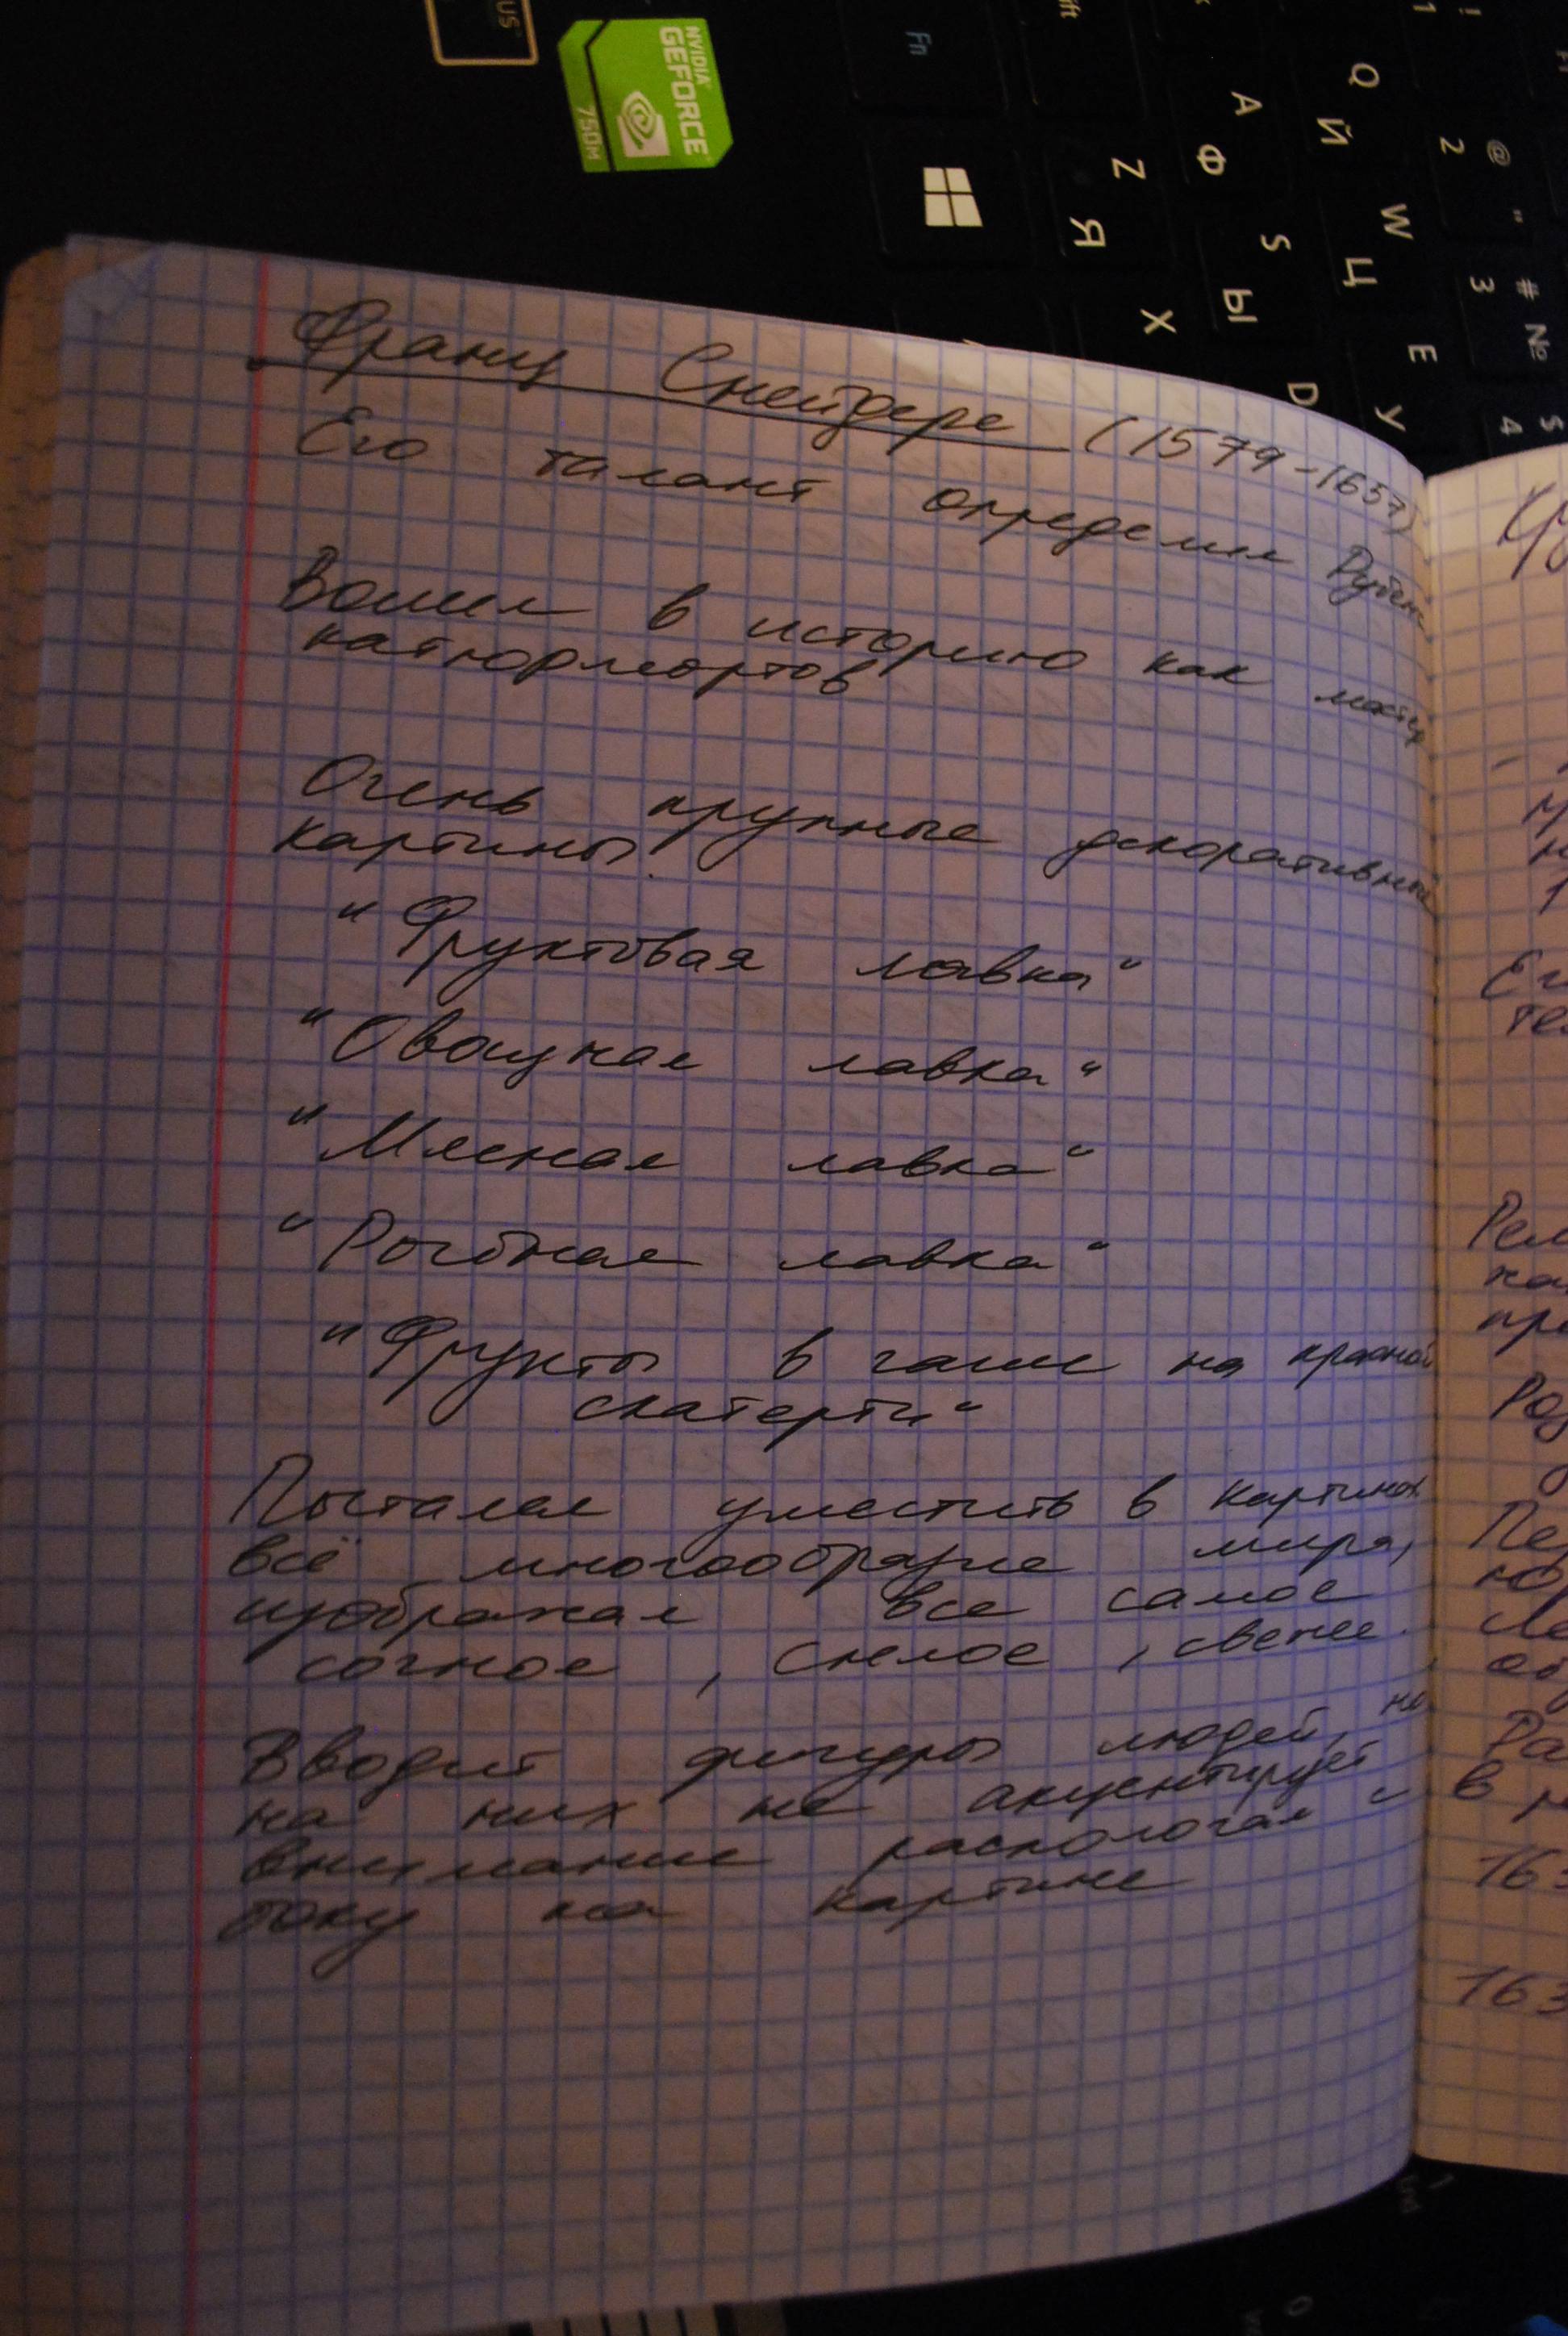 US
NVIDIA
GEFORCE
750M
Fn
Q Й
A Ф
Z Я
W Ц
S Ы
X
E У
D
! 1
@ " 2
# № 3
$ 4
Франц Снейдерс (1579-1657)
Его талант определил Рубенс
Вошел в историю как мастер
натюрмортов
Очень крупные декоративные
картины!
"Фруктовая лавка"
"Овощная лавка"
"Мясная лавка"
"Рыбная лавка"
"Фрукты в чаше на красной
скатерти"
Пытался уместить в картинах
всё многообразие мира,
изображая все самое
сочное, спелое, свежее.
Вводит фигуры людей, но
на них не акцентирует
внимание распологая с
боку на картине
Ег
те
Рем
ка
пре
Роз
Пер
Ра
в
163
163